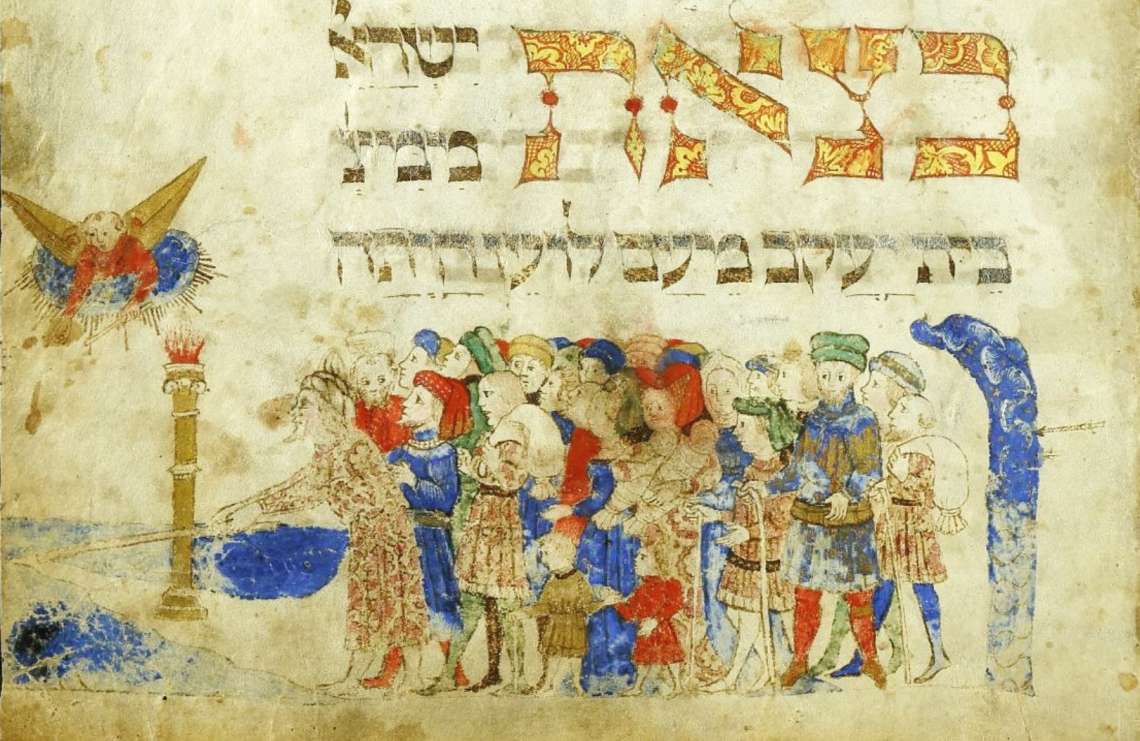 בצאת ישרא׳
ממצ׳
בית יעקב מעם לועז היתה